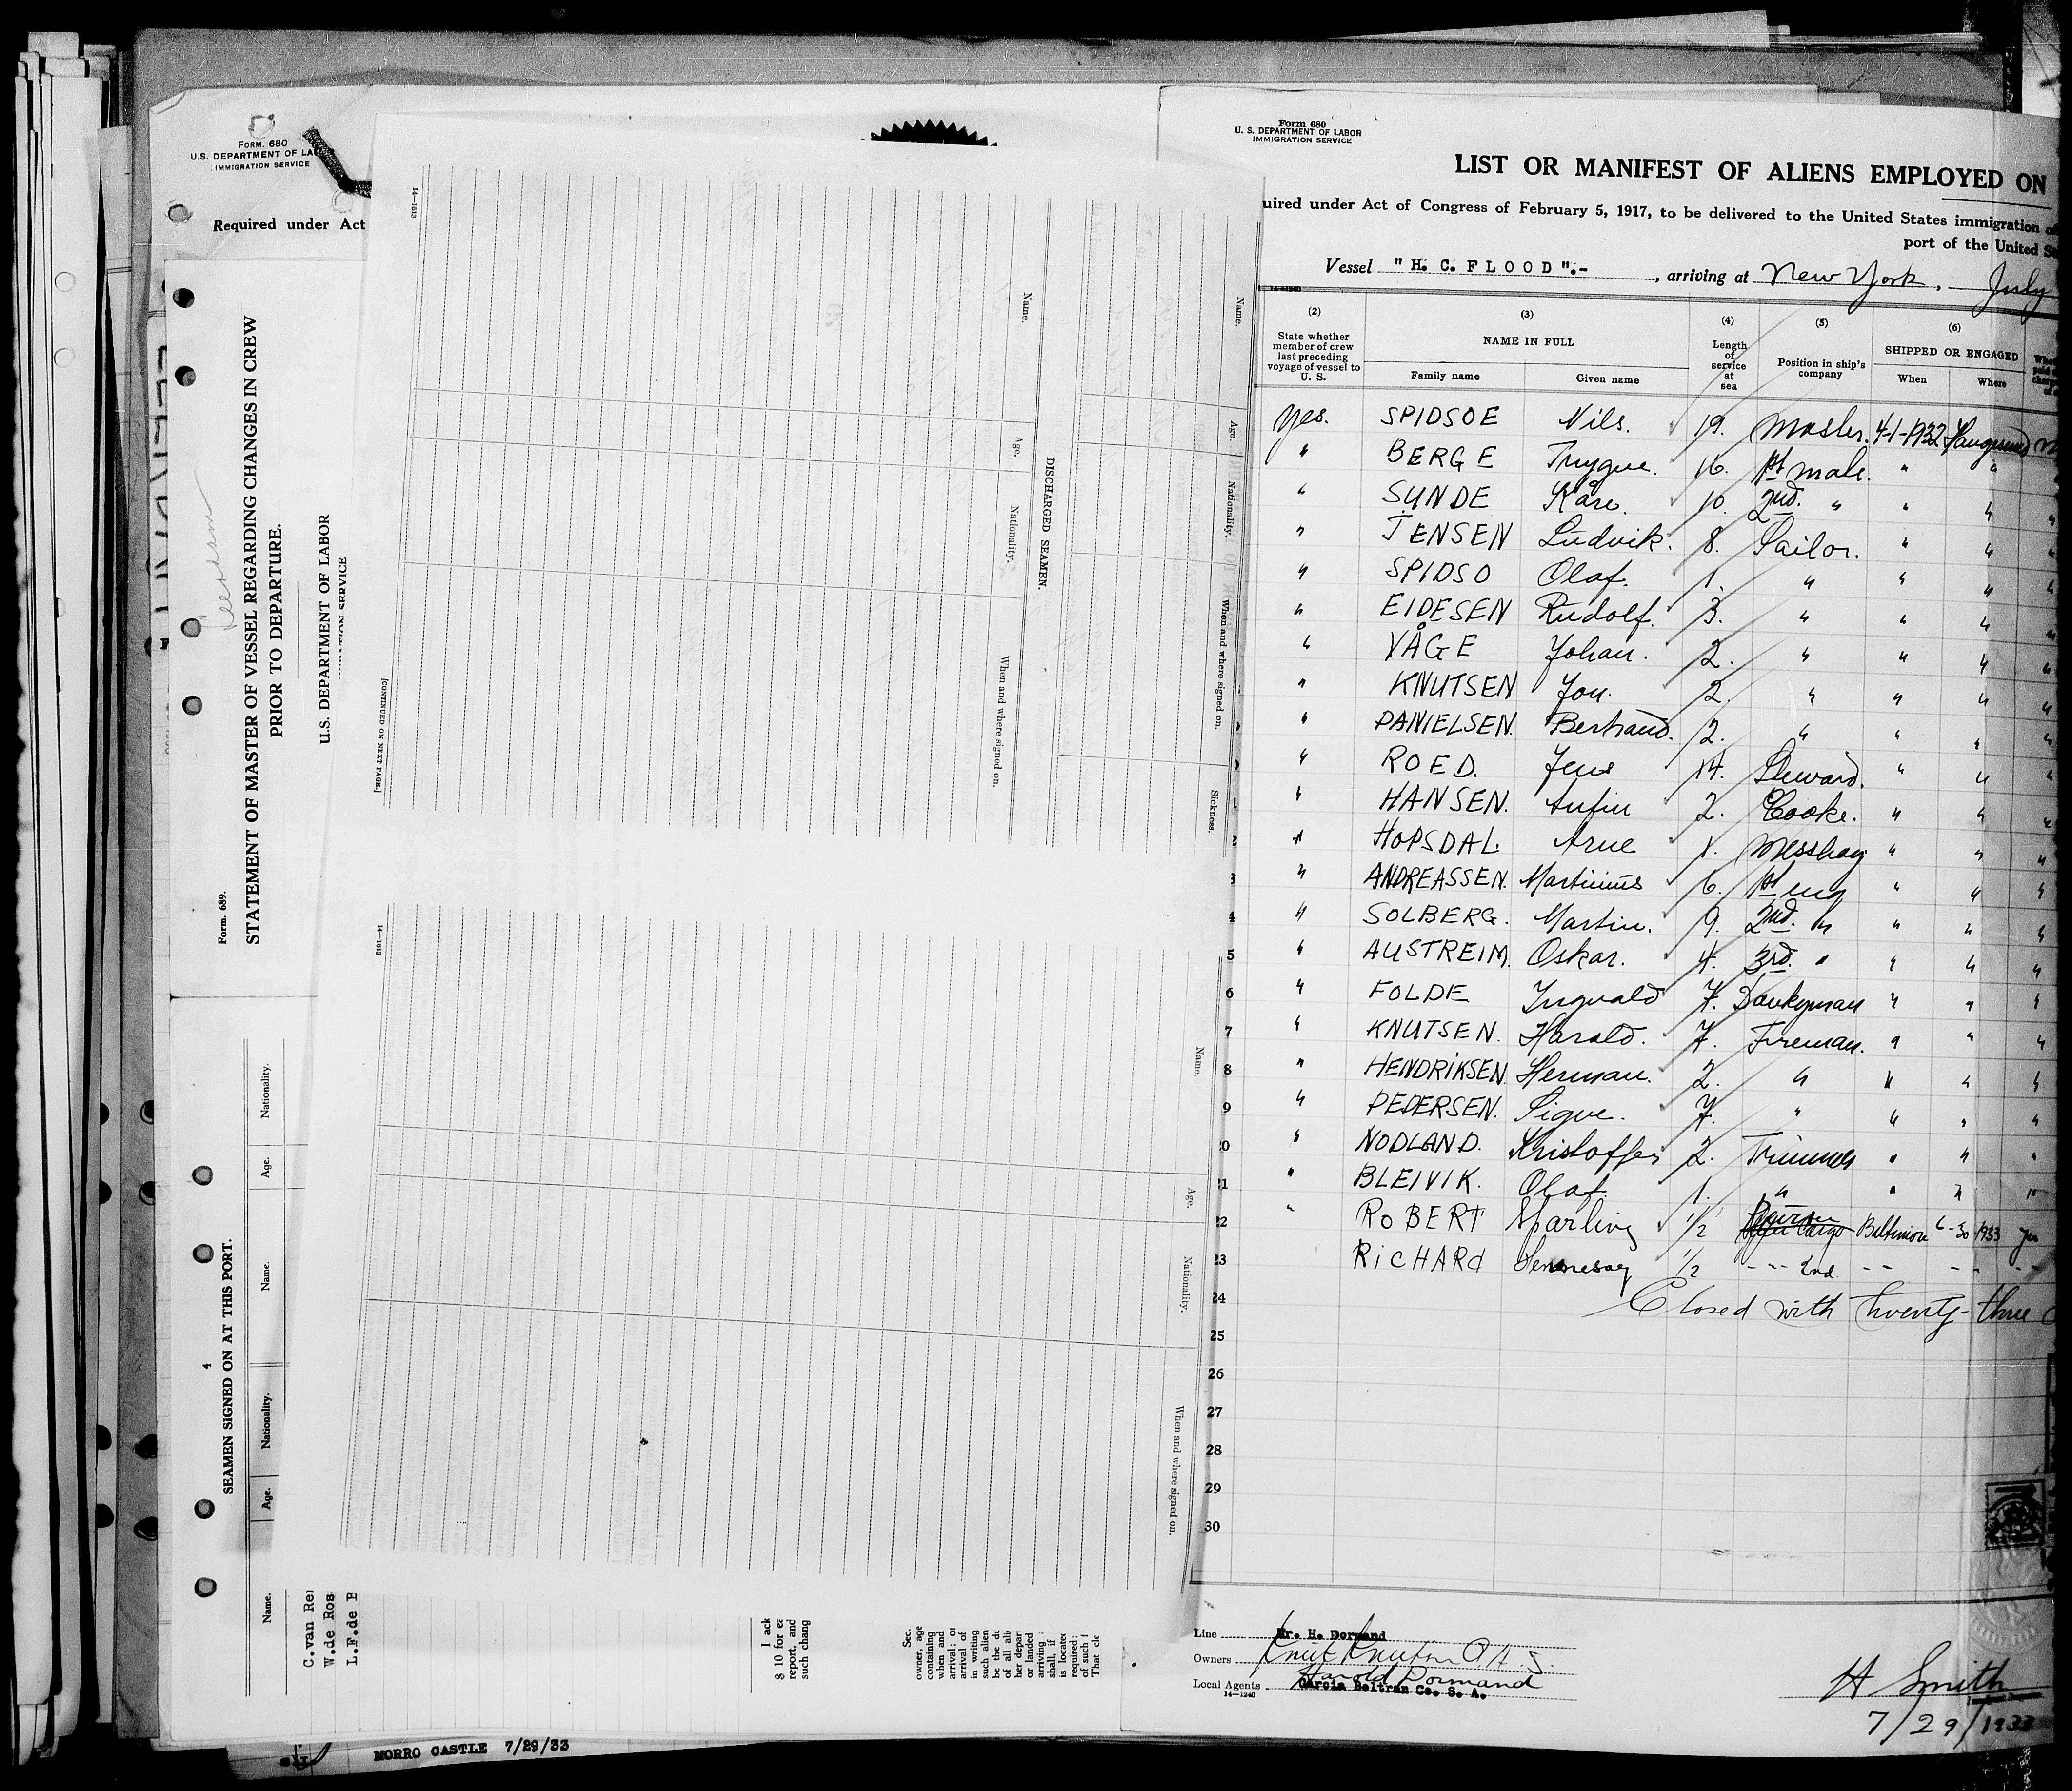 Form. 680
U.S. DEPARTMENT OF LA
IMMIGRATION SERVICE
Required under Act
Form. 689.
STATEMENT OF MASTER OF VESSEL REGARDING CHANGES IN CREW
PRIOR TO DEPARTURE.
U.S. DEPARTMENT OF LABOR
SEAMEN SIGNED ON AT THIS PORT.
Name. Age. Nationality. Name. Age. Nationality.
C.van Re
W.de Ros
L.F.de
14—1313
[CONTINUED ON NEXT PAGE.]
DISCHARGED SEAMEN.
Name. Age. Nationality. When and where signed on.
Name. Age. Nationality. When and where signed on. Sickness.
14—1313
Name. Age. Nationality. When and where signed on.
I ack
$ 10 for ea
report, and
such chang
Sec.
owner, age
containing
when and
arrival; or
arrival of
in writing
such alien
be the du
of all ali
her depar
or landed
arriving
shall, if
is locate
required;
of such l
That cle
MORRO CASTLE 7/29/33
Form 680
U. S. DEPARTMENT OF LABOR
IMMIGRATION SERVICE
LIST OR MANIFEST OF ALIENS EMPLOYED ON
uired under Act of Congress of February 5, 1917, to be delivered to the United States immigration of
port of the United St
Vessel "H. C. FLOOD".- , arriving at New York, July
14—1240
(2) (3) (4) (5) (6)
State whether member of crew last preceding voyage of vessel to U. S.
NAME IN FULL
Family name Given name
Length of service at sea
Position in ship's company
SHIPPED OR ENGAGED
When Where
Yes. SPIDSOE Nils. 19. Master. 4-1-1932 Haugesund
" BERGE Trygve. 16. 1st mate. " "
" SUNDE Kåre. 10. 2nd. " " " "
" JENSEN Ludvik. 8. Sailor. " " "
" SPIDSO Olaf. 1. " " " "
" EIDESEN Rudolf. 3. " " " "
" VÅGE Johan. 2. " " " "
" KNUTSEN Jon. 2. " " " "
" DANIELSEN. Bertrand. 2. " " " "
" ROED. Jens 14. Steward. " " "
" HANSEN. Anfin 2. Cooke. " " "
2 " HOPSDAL. Arne 1. Messboy " " "
3 " ANDREASSEN. Martinius 6. 1st eng " " "
4 " SOLBERG. Martin. 9. 2nd. " " " "
5 " AUSTREIM. Oskar. 4. 3rd. " " " "
6 " FOLDE Ingvald 7. Donkyman " " "
7 " KNUTSEN. Harald. 7. Fireman. " " "
8 " HENDRIKSEN. Herman. 2. " " " "
9 " PEDERSEN. Sigve. 7. " " " "
20 " NODLAND. Kristoffer 2. Trimmer " " "
21 " BLEIVIK. Olaf. 1. " " " "
22 " ROBERT Sparling 1/2 Baltimore 6-30 1933 yes
23 RICHARd Hennessey 1/2 - - - 2nd - - - - - -
24 Closed with Twenty-three
25
26
27
28
29
30
Line Mr. H. Dormand
Owners Knut Knutsen O A. S.
Harold Dormand
Local Agents Garcia Beltran Co. S. A.
14—1240
H Smith
7/29/1933